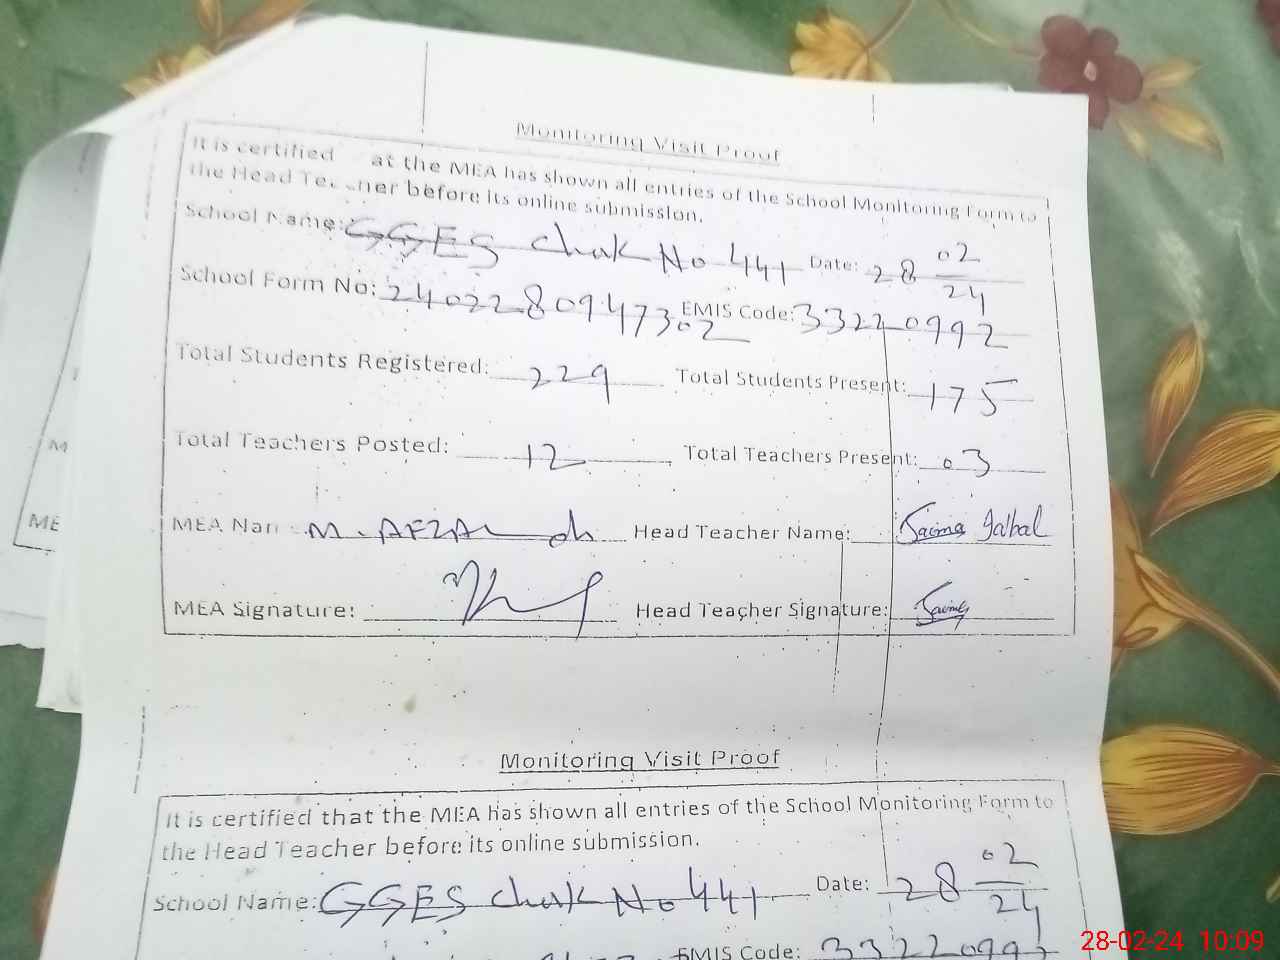 Monitoring Visit Proof
It is certified at the MEA has shown all entries of the School Monitoring Form to
the Head Teacher before its online submission.
School Name: GGES Chak No 441 Date: 28 02/24
School Form No: 2402280947302 EMIS Code: 33220992
Total Students Registered: 229 Total Students Present: 175
Total Teachers Posted: 12 Total Teachers Present: 03
MEA Nam M. AFZAL Head Teacher Name: Saima
MEA Signature: Head Teacher Signature: Saima
Monitoring Visit Proof
It is certified that the MEA has shown all entries of the School Monitoring Form to
the Head Teacher before its online submission.
School Name: GGES Chak No 441 Date: 28 02/24
EMIS Code: 33220992
M
ME
28-02-24 10:09